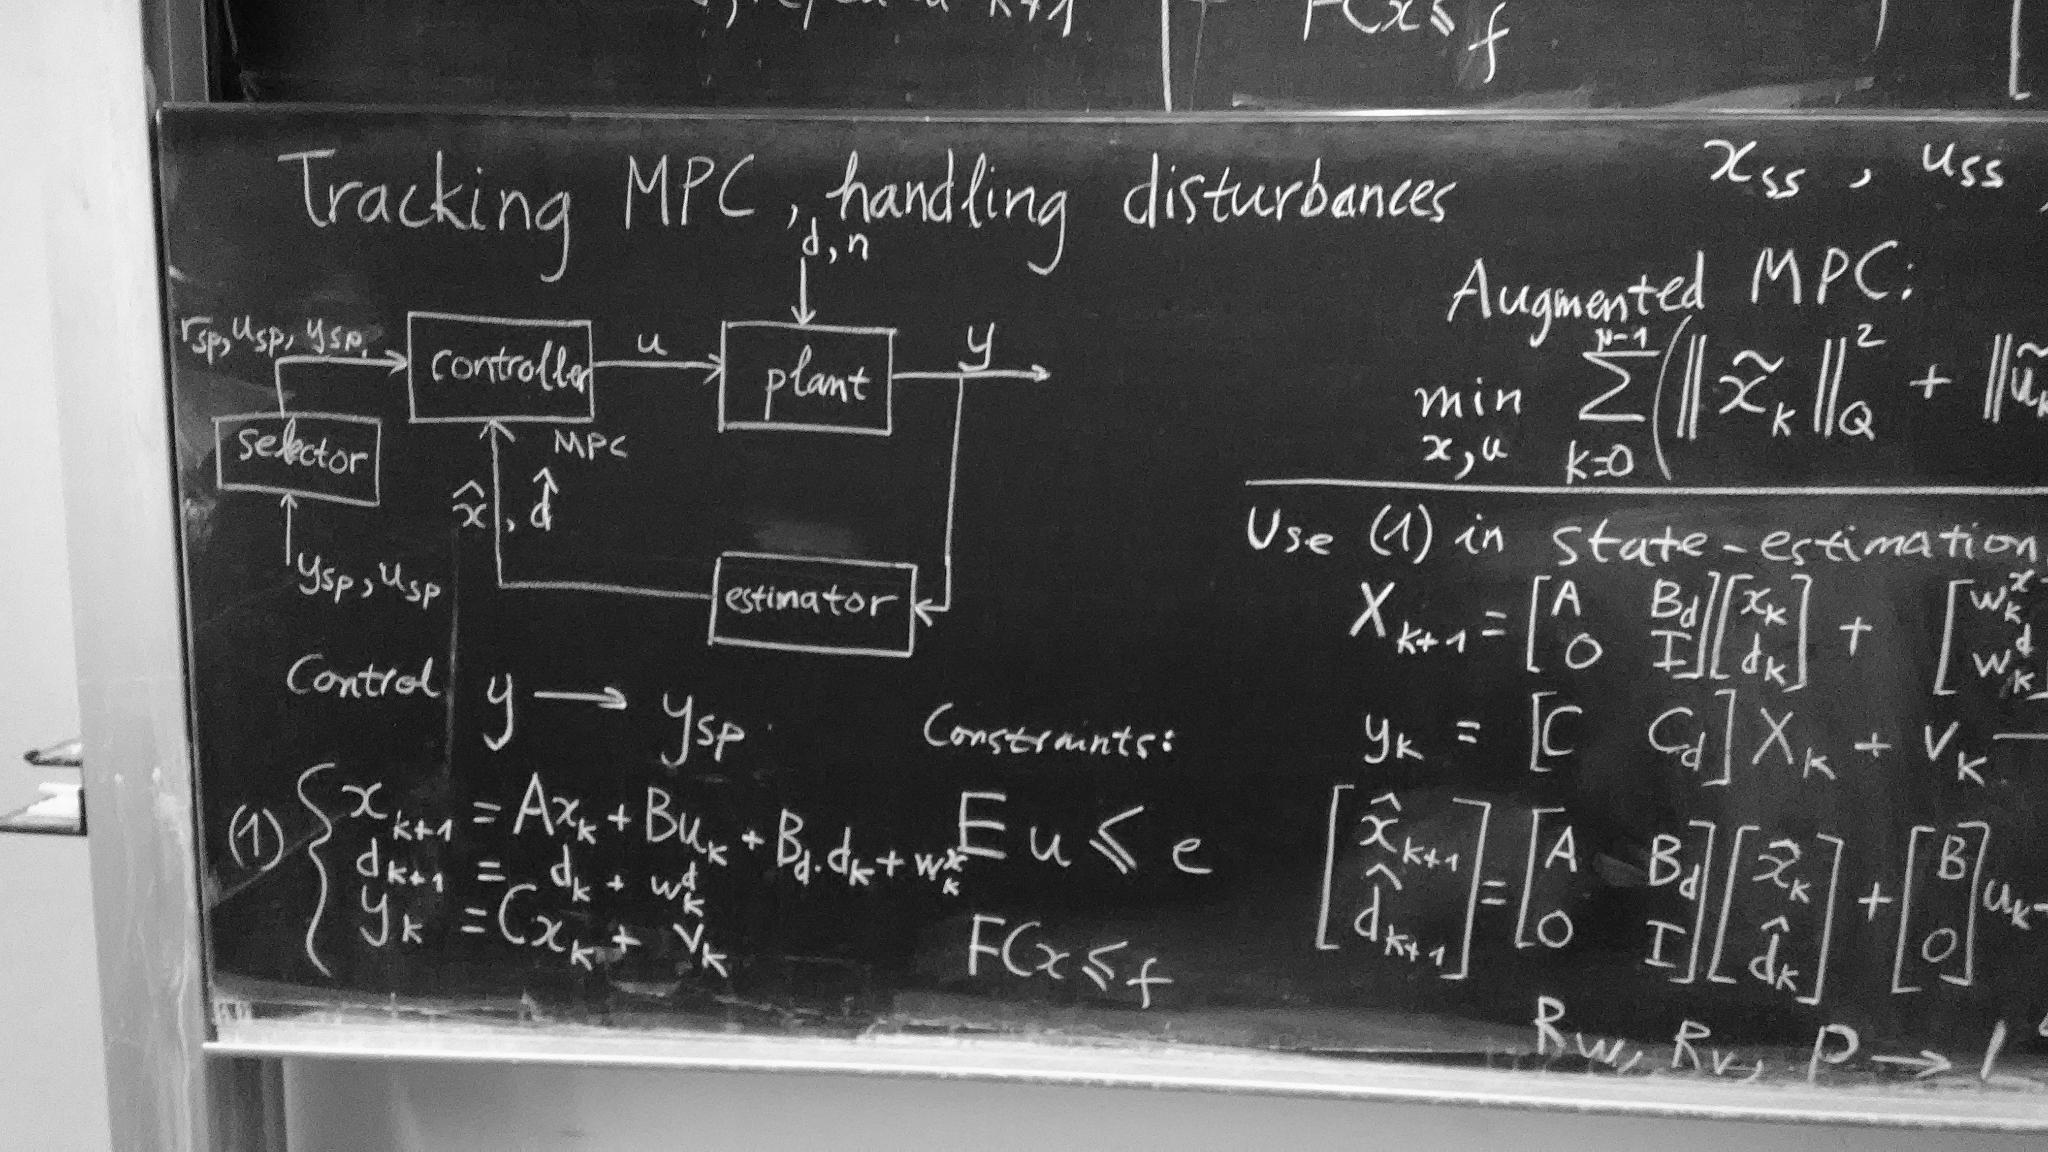 k+1
FCx ≤ f
Tracking MPC, handling disturbances
d, n
r_sp, u_sp, y_sp
controller
u
plant
y
MPC
selector
x̂, d̂
y_sp, u_sp
estimator
Control y → y_sp
(1) { x_{k+1} = Ax_k + Bu_k + B_d·d_k + w_k^x
d_{k+1} = d_k + w_k^d
y_k = Cx_k + v_k
Constraints:
Eu ≤ e
FCx ≤ f
x_ss, u_ss,
Augmented MPC:
min_{x,u} Σ_{k=0}^{N-1} ( ‖x̃_k‖²_Q + ‖ũ_k
Use (1) in state-estimation
X_{k+1} = [A B_d; 0 I] [x_k; d_k] + [w_k^x; w_k^d]
y_k = [C C_d] X_k + v_k
[x̂_{k+1}; d̂_{k+1}] = [A B_d; 0 I] [x̂_k; d̂_k] + [B; 0] u_k +
R_w, R_v, P →